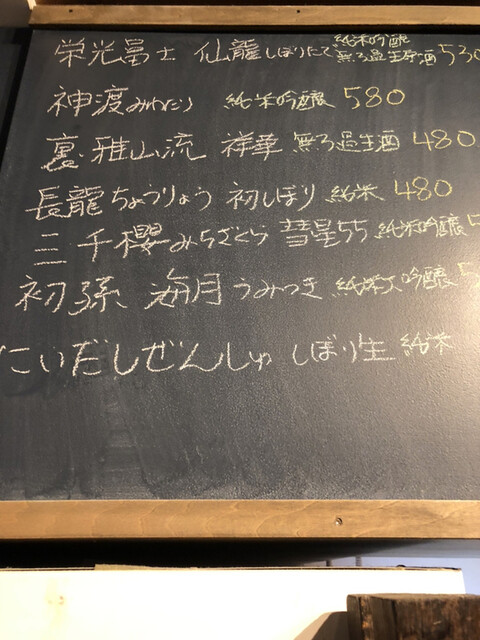 栄光冨士 仙龍しぼりたて 純米吟醸 無ろ過生原酒 530
神渡みわたり 純米吟醸 580
裏・雅山流 祥華 無ろ過生酒 480
長龍ちょうりょう 初しぼり 純米 480
三千櫻みちざくら 彗星55 純米吟醸 5
初孫 海月うみつき 純米大吟醸 5
にいだしぜんしゅ しぼり生 純米